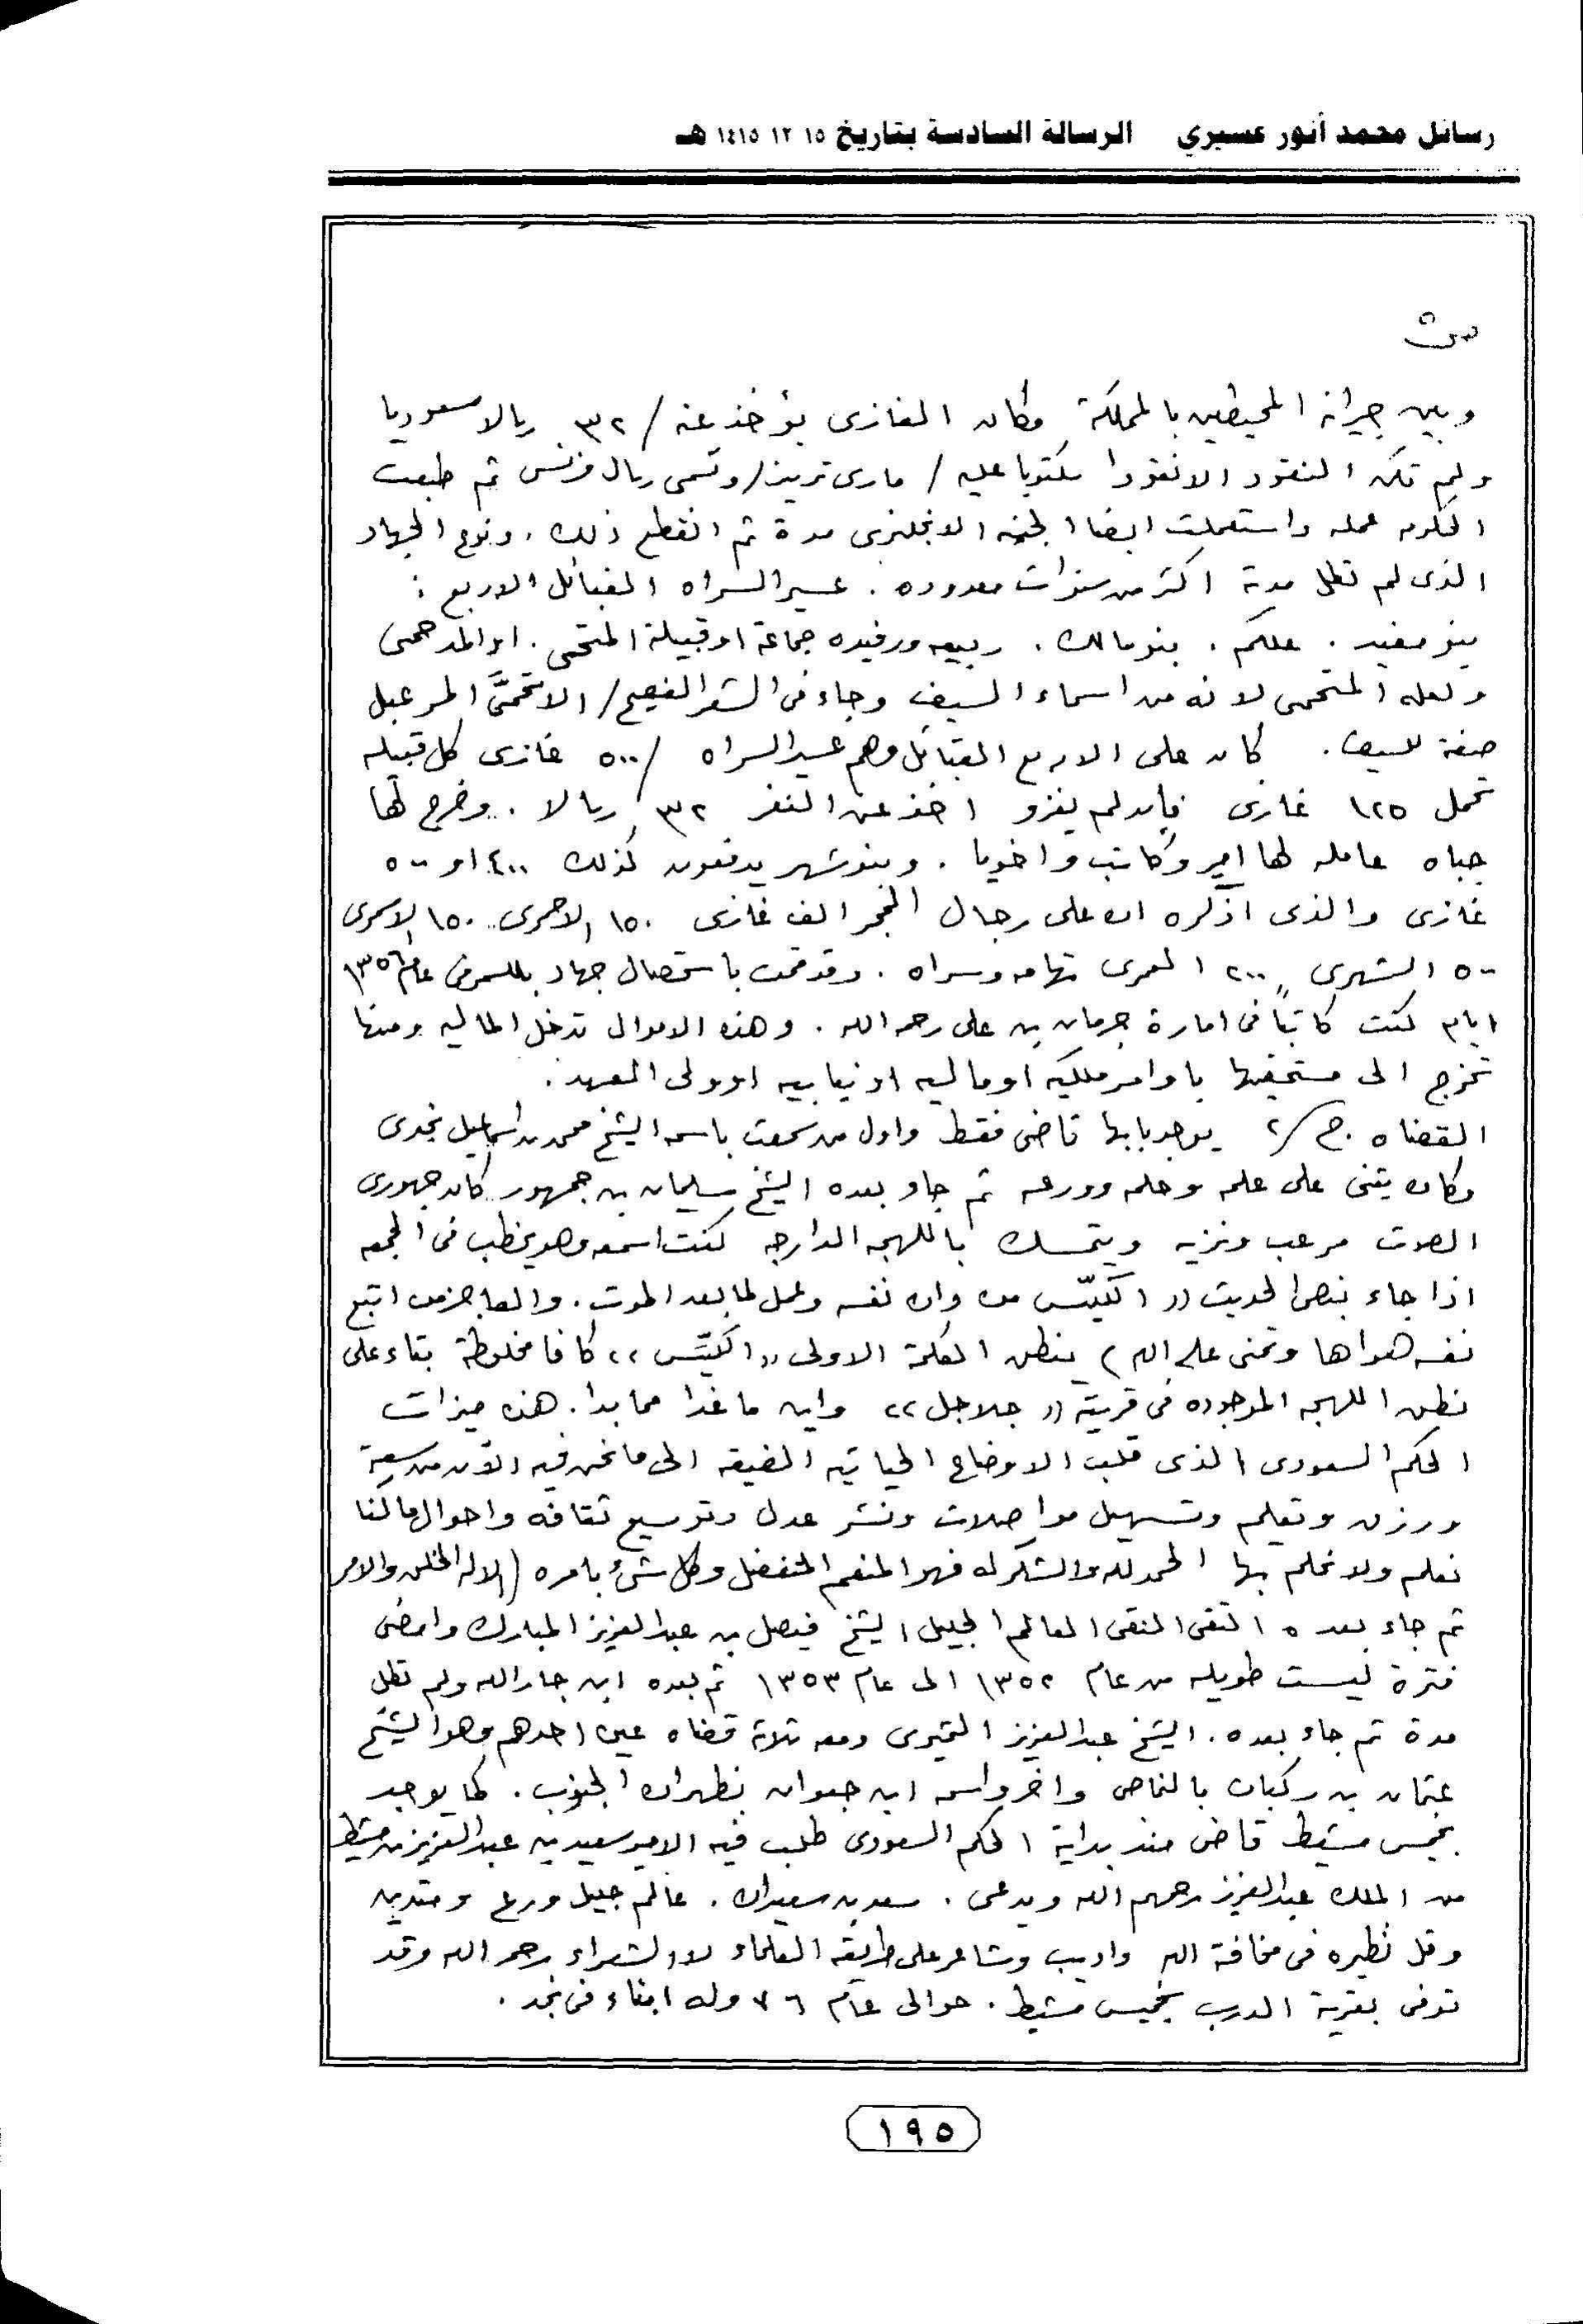 رسائل محمد أنور عسيري الرسالة السادسة بتاريخ ١٥ ١٢ ١٤١٥ هـ
وبين جيرانه المحيطين بالمملكة وكان الغازى يؤخذ عنه / ٣٢ ريالا سعوديا
ولم تكن النقود الا نقودا مكتوبا عليه / مارى تريز / وتسمى ريال فرنسى ثم طبعت
الحكومه عمله واستعملت ايضا الجنيه الانجليزى مدة ثم انقطع ذلك . ونوع الجهاد
الذى لم تطل مدته اكثر من سنوات معدوده . عسير السراه القبائل الاربع :
بنو مغيد . علكم . بنو مالك . ربيعه ورفيده جماعة او قبيلة المتحمى . او المدحمى
ولعله المتحمى لانه من اسماء السيف وجاء فى الشعر الفصيح / الاتحمىَّ المرعبل
صفة للسيف . كان على الاربع القبائل وهم عسير السراه / ٥٠٠ غازى كل قبيله
تحمل ١٢٥ غازى فإن لم يغزو اخذ عن النفر ٣٢ ريالا . وخرج لها
جباه عامله لها امير وكاتب واخويا . وبنو شهر يدفعون كذلك ٤٠٠ او ٥٠٠
غازى والذى اذكره ان على رجال الحجر الف غازى ١٥٠ الاحمرى .. ١٥٠ الاسمرى
٥٠٠ الشهرى ,, ٢٠٠ العمرى تهامه وسراه . وقد قمت باستحصال جهاد بللسمر فى عام ١٣٥٦
ايام كنت كاتباً فى امارة جرمان بن على رحمه الله . وهذه الاموال تدخل الماليه ومنها
تخرج الى مستحقيها باوامر ملكيه او ماليه او نيابيه او ولى العهد .
القضاه . ج / ٢ يوجد بابها قاضى فقط واول من سمعت باسمه الشيخ محمد بن اسماعيل نجدى
وكان يثنى على علمه وحلمه وورعه ثم جاء بعده الشيخ سليمان بن جمهور كان جهورى
الصوت مرعب ونزيه ويتمسك باللهجه الدارجه كنت اسمعه وهو يخطب فى الجمعه
اذا جاء بنص الحديث (( الكيّس من دان نفسه وعمل لما بعد الموت . والعاجز من اتبع
نفسه هواها وتمنى على الله ) ينطق الكلمة الاولى (( الكيّس ,, كافا مخلوطة بتاء على
نطق اللهجه الموجوده فى قريته (( جلاجل ,, واين ما غدا مما بدا . هذه ميزات
الحكم السعودى الذى قلب الاوضاع الحياتيه الضيقه الى ما نحن فيه الآن من سعة
ورزق وتعليم وتسهيل مواصلات ونشر عدل وتوسيع ثقافه واحوال ما كنا
نعلم ولا نحلم بها الحمد لله والشكر له فهو المنعم المتفضل وكل شىء بامره ( الا له الخلق والامر
ثم جاء بعده التقى النقى العالم الجليل الشيخ فيصل بن عبد العزيز المبارك وامضى
فترة ليست طويله من عام ١٣٥٢ الى عام ١٣٥٣ ثم بعده ابن جار الله ولم تطل
مدة ثم جاء بعده . الشيخ عبد العزيز ومعه ثلاثة قضاه عين احدهم وهو الشيخ
عثمان بن ركبان بالنماص واخر واسمه ابن جعوان بظهران الجنوب . كما يوجد
بخميس مشيط قاض منذ بداية الحكم السعودى طلب فيه الامير سعيد بن عبد العزيز بن مشيط
من الملك عبد العزيز رحمهم الله ويدعى . سعد بن سعيدان . عالم جليل ورع ومتدين
وقل نظيره فى مخافة الله واديب وشاعر على طريقه العلماء لا الشعراء رحمه الله وقد
توفى بقرية الدرب بخميس مشيط . حوالى عام ٧٦ وله ابناء فى نجد .
١٩٥